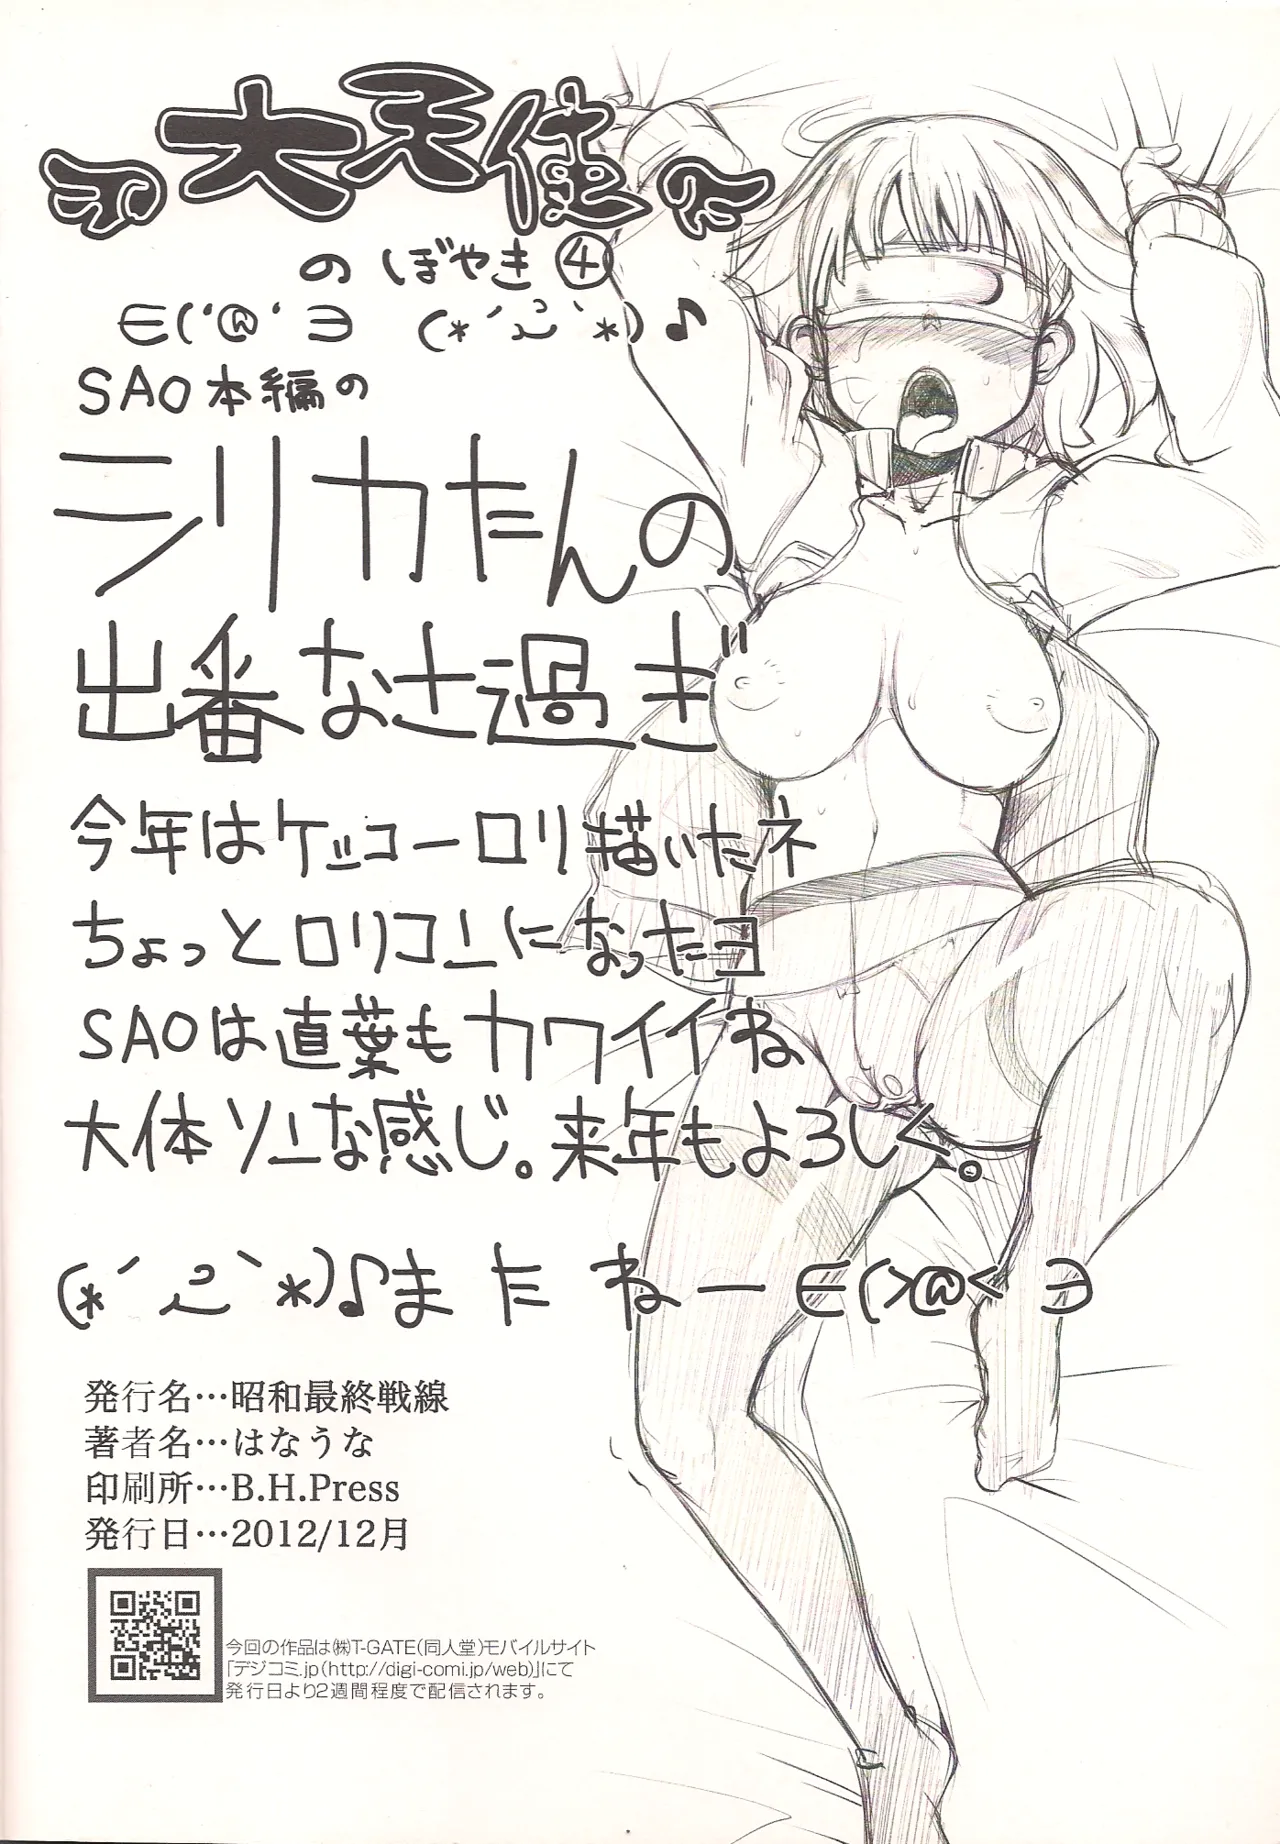 大天使
のぼやき④
∈('@'∋ (*´ω`*)♪
SAO本編の
シリカたんの
出番なさ過ぎ
今年はケッコーロリ描いたネ
ちょっとロリコンになったヨ
SAOは直葉もカワイイね
大体ソンな感じ。来年もよろしく。
(*´ω`*)♪またねー∈(>@<∋
発行名…昭和最終戦線
著者名…はなうな
印刷所…B.H.Press
発行日…2012/12月
今回の作品は㈱T-GATE(同人堂)モバイルサイト
「デジコミ.jp(http://digi-comi.jp/web)」にて
発行日より2週間程度で配信されます。